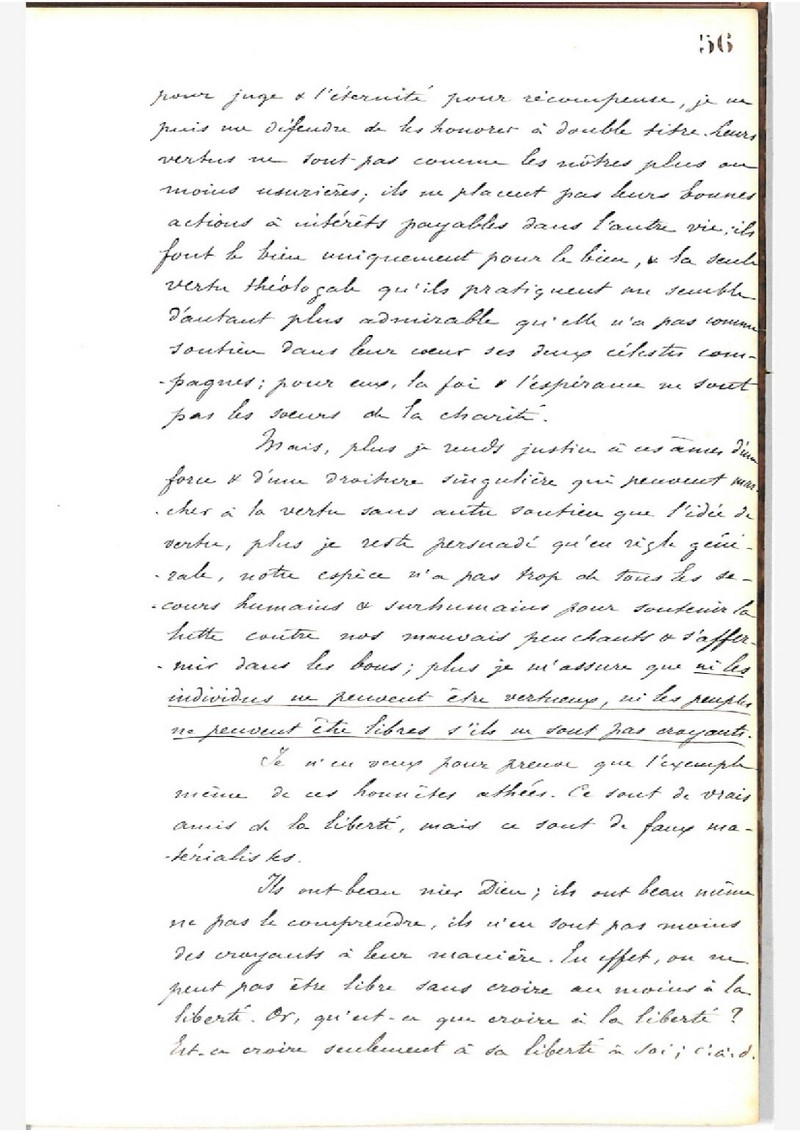 56
pour juge & l'éternité pour récompense, je ne
puis me défendre de les honorer à double titre. Leurs
vertus ne sont pas comme les nôtres plus ou
moins usurières; ils ne placent pas leurs bonnes
actions à intérêts payables dans l'autre vie; ils
font le bien uniquement pour le bien, & la seule
vertu théologale qu'ils pratiquent me semble
d'autant plus admirable qu'elle n'a pas comme
soutien dans leur cœur ses deux célestes com-
-pagnes; pour eux, la foi & l'espérance ne sont
pas les sœurs de la charité.
Mais, plus je rends justice à ces âmes d'une
force & d'une droiture singulière qui peuvent mar-
-cher à la vertu sans autre soutien que l'idée de
vertu, plus je reste persuadé qu'en règle géné-
-rale, notre espèce n'a pas trop de tous les se-
-cours humains & surhumains pour soutenir la
lutte contre nos mauvais penchants & s'affer-
-mir dans les bons; plus je m'assure que ni les
individus ne peuvent être vertueux, ni les peuples
ne peuvent être libres s'ils ne sont pas croyants.
Je n'en veux pour preuve que l'exemple
même de ces honnêtes athées. Ce sont de vrais
amis de la liberté, mais ce sont de faux ma-
-térialistes.
Ils ont beau nier Dieu; ils ont beau même
ne pas le comprendre, ils n'en sont pas moins
des croyants à leur manière. En effet, on ne
peut pas être libre sans croire au moins à la
liberté. Or, qu'est-ce que croire à la liberté ?
Est-ce croire seulement à sa liberté à soi; c.à.d.